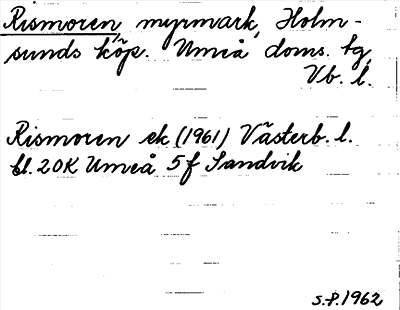 Rismoren, myrmark, Holm-
sunds köp. Umeå doms. tg,
Vb. l.
Rismoren ek (1961) Västerb. l.
bl. 20K Umeå 5f Sandvik
S.P. 1962